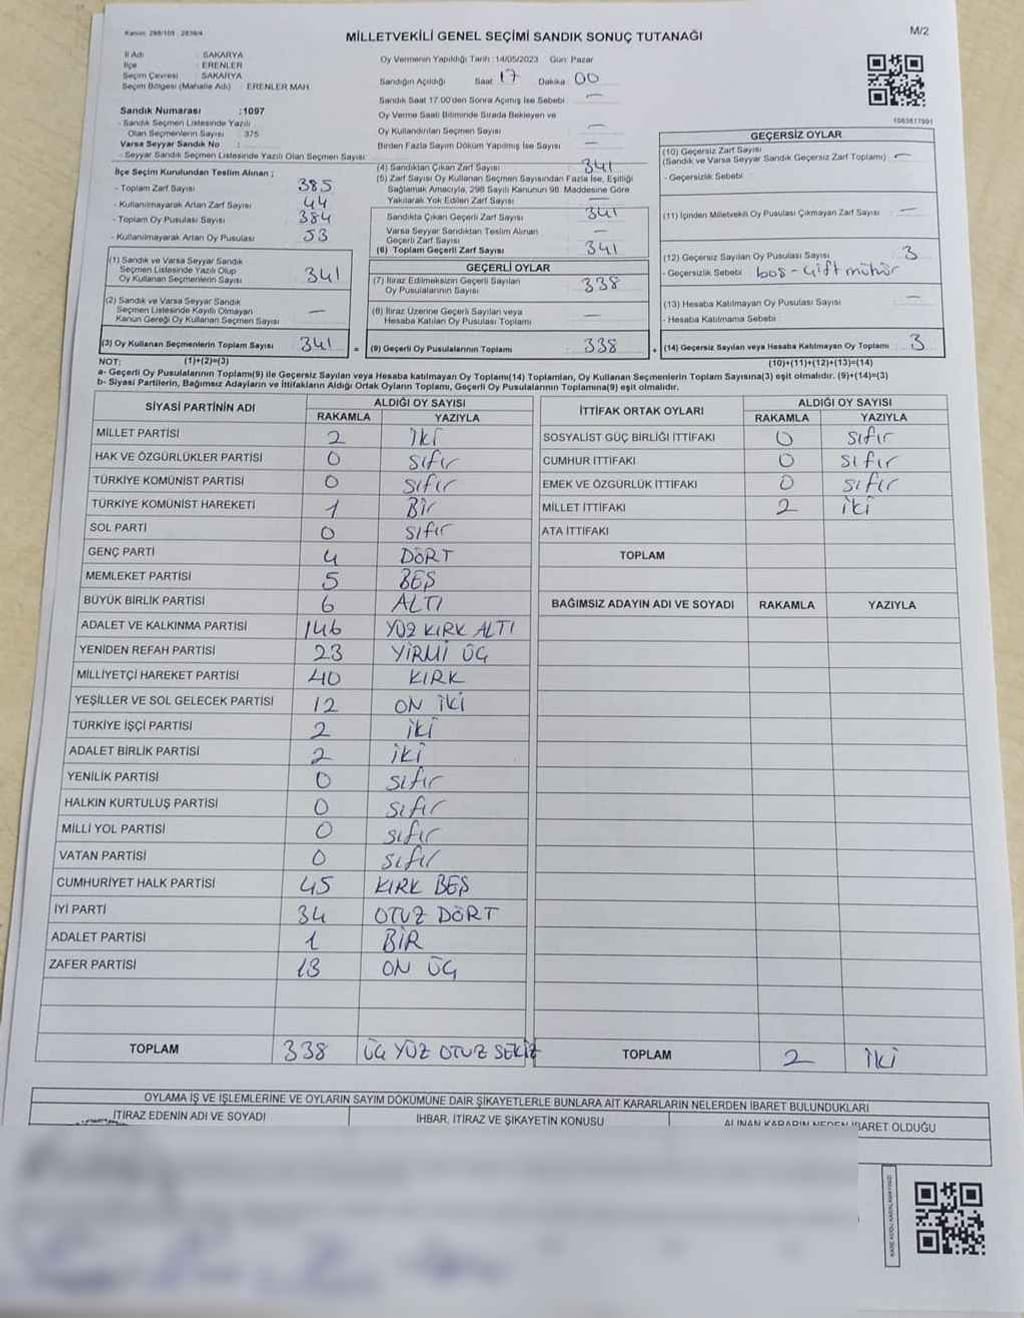 Kanun: 298/105 , 2839/4
MİLLETVEKİLİ GENEL SEÇİMİ SANDIK SONUÇ TUTANAĞI
M/2
İl Adı : SAKARYA
İlçe : ERENLER
Seçim Çevresi : SAKARYA
Seçim Bölgesi (Mahalle Adı) : ERENLER MAH.
Sandık Numarası :1097
- Sandık Seçmen Listesinde Yazılı
Olan Seçmenlerin Sayısı : 375
Varsa Seyyar Sandık No :
- Seyyar Sandık Seçmen Listesinde Yazılı Olan Seçmen Sayısı:
Oy Vermenin Yapıldığı Tarih :14/05/2023 Gün: Pazar
Sandığın Açıldığı Saat 17 Dakika 00
Sandık Saat 17.00'den Sonra Açılmış İse Sebebi —
Oy Verme Saati Bitiminde Sırada Bekleyen ve
Oy Kullandırılan Seçmen Sayısı —
Birden Fazla Sayım Döküm Yapılmış İse Sayısı —
İlçe Seçim Kurulundan Teslim Alınan ;
- Toplam Zarf Sayısı 385
- Kullanılmayarak Artan Zarf Sayısı 44
- Toplam Oy Pusulası Sayısı 384
- Kullanılmayarak Artan Oy Pusulası 53
(1) Sandık ve Varsa Seyyar Sandık
Seçmen Listesinde Yazılı Olup
Oy Kullanan Seçmenlerin Sayısı 341
(2) Sandık ve Varsa Seyyar Sandık
Seçmen Listesinde Kayıtlı Olmayan
Kanun Gereği Oy Kullanan Seçmen Sayısı —
(3) Oy Kullanan Seçmenlerin Toplam Sayısı 341 =
(4) Sandıktan Çıkan Zarf Sayısı 341
(5) Zarf Sayısı Oy Kullanan Seçmen Sayısından Fazla İse, Eşitliği
Sağlamak Amacıyla, 298 Sayılı Kanunun 98. Maddesine Göre
Yakılarak Yok Edilen Zarf Sayısı —
Sandıkta Çıkan Geçerli Zarf Sayısı 341
Varsa Seyyar Sandıktan Teslim Alınan
Geçerli Zarf Sayısı —
(6) Toplam Geçerli Zarf Sayısı 341
GEÇERLİ OYLAR
(7) İtiraz Edilmeksizin Geçerli Sayılan
Oy Pusulalarının Sayısı 338
(8) İtiraz Üzerine Geçerli Sayılan veya
Hesaba Katılan Oy Pusulası Toplamı —
(9) Geçerli Oy Pusulalarının Toplamı 338 +
1083617991
GEÇERSİZ OYLAR
(10) Geçersiz Zarf Sayısı
(Sandık ve Varsa Seyyar Sandık Geçersiz Zarf Toplamı) —
- Geçersizlik Sebebi
(11) İçinden Milletvekili Oy Pusulası Çıkmayan Zarf Sayısı —
(12) Geçersiz Sayılan Oy Pusulası Sayısı 3
- Geçersizlik Sebebi boş - çift mühür
(13) Hesaba Katılmayan Oy Pusulası Sayısı —
- Hesaba Katılmama Sebebi
(14) Geçersiz Sayılan veya Hesaba Katılmayan Oy Toplamı 3
NOT: (1)+(2)=(3) (10)+(11)+(12)+(13)=(14)
a- Geçerli Oy Pusulalarının Toplamı(9) ile Geçersiz Sayılan veya Hesaba katılmayan Oy Toplamı(14) Toplamları, Oy Kullanan Seçmenlerin Toplam Sayısına(3) eşit olmalıdır. (9)+(14)=(3)
b- Siyasi Partilerin, Bağımsız Adayların ve İttifakların Aldığı Ortak Oyların Toplamı, Geçerli Oy Pusulalarının Toplamına(9) eşit olmalıdır.
SİYASİ PARTİNİN ADI ALDIĞI OY SAYISI
RAKAMLA YAZIYLA
MİLLET PARTİSİ 2 İki
HAK VE ÖZGÜRLÜKLER PARTİSİ 0 sıfır
TÜRKİYE KOMÜNİST PARTİSİ 0 sıfır
TÜRKİYE KOMÜNİST HAREKETİ 1 Bir
SOL PARTİ 0 sıfır
GENÇ PARTİ 4 DÖRT
MEMLEKET PARTİSİ 5 BEŞ
BÜYÜK BİRLİK PARTİSİ 6 ALTI
ADALET VE KALKINMA PARTİSİ 146 YÜZ KIRK ALTI
YENİDEN REFAH PARTİSİ 23 YİRMİ ÜÇ
MİLLİYETÇİ HAREKET PARTİSİ 40 KIRK
YEŞİLLER VE SOL GELECEK PARTİSİ 12 ON İKİ
TÜRKİYE İŞÇİ PARTİSİ 2 iki
ADALET BİRLİK PARTİSİ 2 iki
YENİLİK PARTİSİ 0 sıfır
HALKIN KURTULUŞ PARTİSİ 0 sıfır
MİLLİ YOL PARTİSİ 0 sıfır
VATAN PARTİSİ 0 sıfır
CUMHURİYET HALK PARTİSİ 45 KIRK BEŞ
İYİ PARTİ 34 OTUZ DÖRT
ADALET PARTİSİ 1 BİR
ZAFER PARTİSİ 13 ON ÜÇ
TOPLAM 338 ÜÇ YÜZ OTUZ SEKİZ
İTTİFAK ORTAK OYLARI ALDIĞI OY SAYISI
RAKAMLA YAZIYLA
SOSYALİST GÜÇ BİRLİĞİ İTTİFAKI 0 sıfır
CUMHUR İTTİFAKI 0 sıfır
EMEK VE ÖZGÜRLÜK İTTİFAKI 0 sıfır
MİLLET İTTİFAKI 2 iki
ATA İTTİFAKI
TOPLAM
BAĞIMSIZ ADAYIN ADI VE SOYADI RAKAMLA YAZIYLA
TOPLAM 2 iki
OYLAMA İŞ VE İŞLEMLERİNE VE OYLARIN SAYIM DÖKÜMÜNE DAİR ŞİKAYETLERLE BUNLARA AİT KARARLARIN NELERDEN İBARET BULUNDUKLARI
İTİRAZ EDENİN ADI VE SOYADI İHBAR, İTİRAZ VE ŞİKAYETİN KONUSU ALINAN KARARIN NEDEN İBARET OLDUĞU